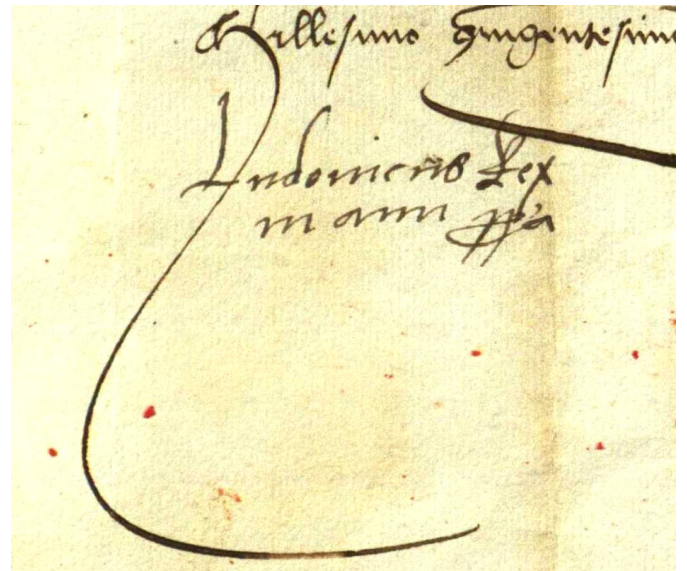 Millesimo Quingentesimo
Ludovicus Rex
manu ppa